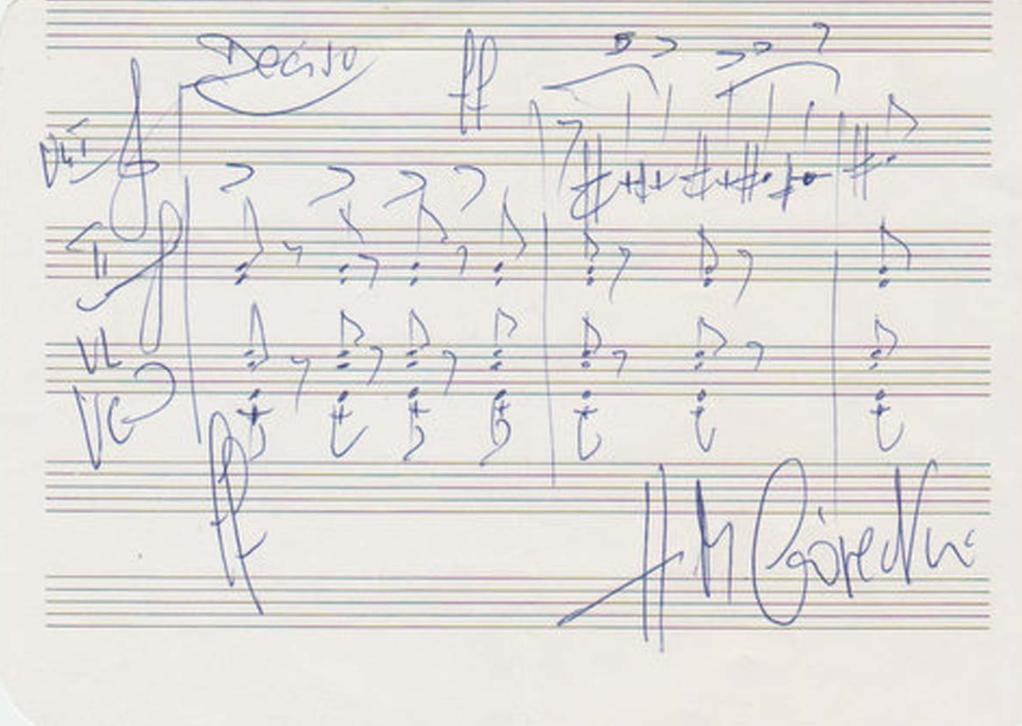 Deciso ff
VL I
II
VL
VC
ff
H M Górecki